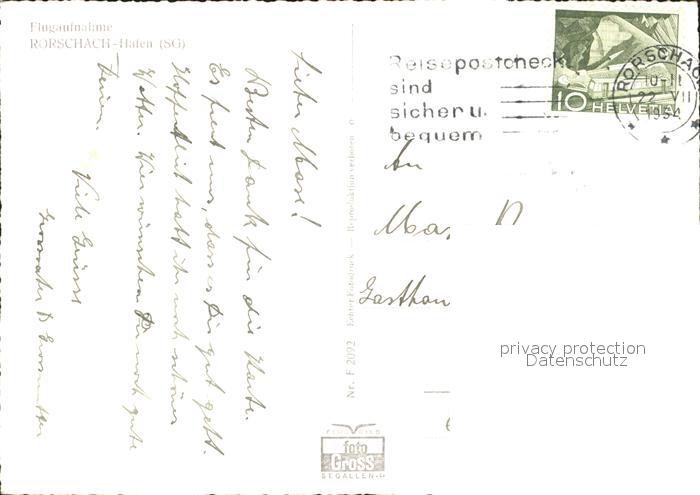 Flugaufnahme
RORSCHACH-Hafen (SG)
Lieber Max!
Besten Dank für die Karte.
Es freut uns, dass es Dir gut geht.
Hoffentlich habt ihr noch schönes
Wetter. Wir wünschen Dir noch gute
Ferien.
Viele Grüsse
Grossvater & Grossmutter
Nr. F 2092 Echter Fotodruck — Reproduktion verboten
foto
GROSS
ST. GALLEN
Reisepostcheck
sind
sicher u.
bequem
10 HELVETIA
RORSCHAC
10-11
22. VII
1954
An
Ma
Gasthau
privacy protection
Datenschutz